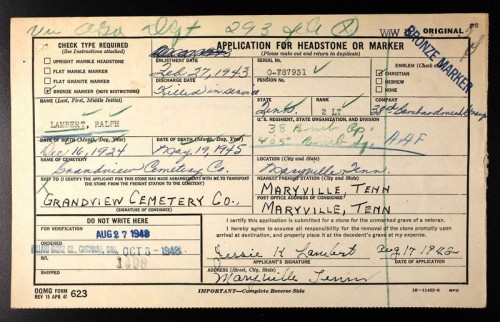 293
WW II
ORIGINAL
BRONZE MARKER
CHECK TYPE REQUIRED
(See Instructions attached)
UPRIGHT MARBLE HEADSTONE
FLAT MARBLE MARKER
FLAT GRANITE MARKER
BRONZE MARKER (NOTE RESTRICTIONS)
APPLICATION FOR HEADSTONE OR MARKER
(Please make out and return in duplicate)
ENLISTMENT DATE
Feb 27, 1943
DISCHARGE DATE
Killed in service
SERIAL NO.
O-787931
PENSION NO.
EMBLEM (Check one)
CHRISTIAN
HEBREW
NONE
NAME (Last, First, Middle Initial)
LAMBERT, RALPH
STATE
Tenn
RANK
2 Lt
COMPANY
38th Bombardment Group
U.S. REGIMENT, STATE ORGANIZATION, AND DIVISION
38 Bomb Gp.
405 Bomb Sq.
AAF
DATE OF BIRTH (Month, Day, Year)
Dec 16, 1924
DATE OF DEATH (Month, Day, Year)
May 19, 1945
NAME OF CEMETERY
Grandview Cemetery Co.
LOCATION (City and State)
Maryville, Tenn.
TO CERTIFY THE APPLICANT FOR THIS STONE HAS MADE ARRANGEMENTS WITH ME TO TRANSPORT THE STONE FROM THE FREIGHT STATION TO THE CEMETERY
NEAREST FREIGHT STATION
MARYVILLE, TENN
GRANDVIEW CEMETERY CO.,
(SIGNATURE OF CONSIGNEE)
POST OFFICE ADDRESS
MARYVILLE, TENN
DO NOT WRITE HERE
FOR VERIFICATION
AUG 27 1948
OCT 5 - 1948
ORDERED
B/L
SHIPPED
I certify this application is submitted for a stone for the unmarked grave of a veteran.
I hereby agree to assume all responsibility for the removal of the stone promptly upon arrival at destination, and properly place it at the decedent's grave at my expense.
Jessie K Lambert
APPLICANT'S SIGNATURE
Aug 17 1948
DATE OF APPLICATION
Maryville Tenn
ADDRESS
OQMG FORM
REV 10 APR 47
623
IMPORTANT—Complete Reverse Side